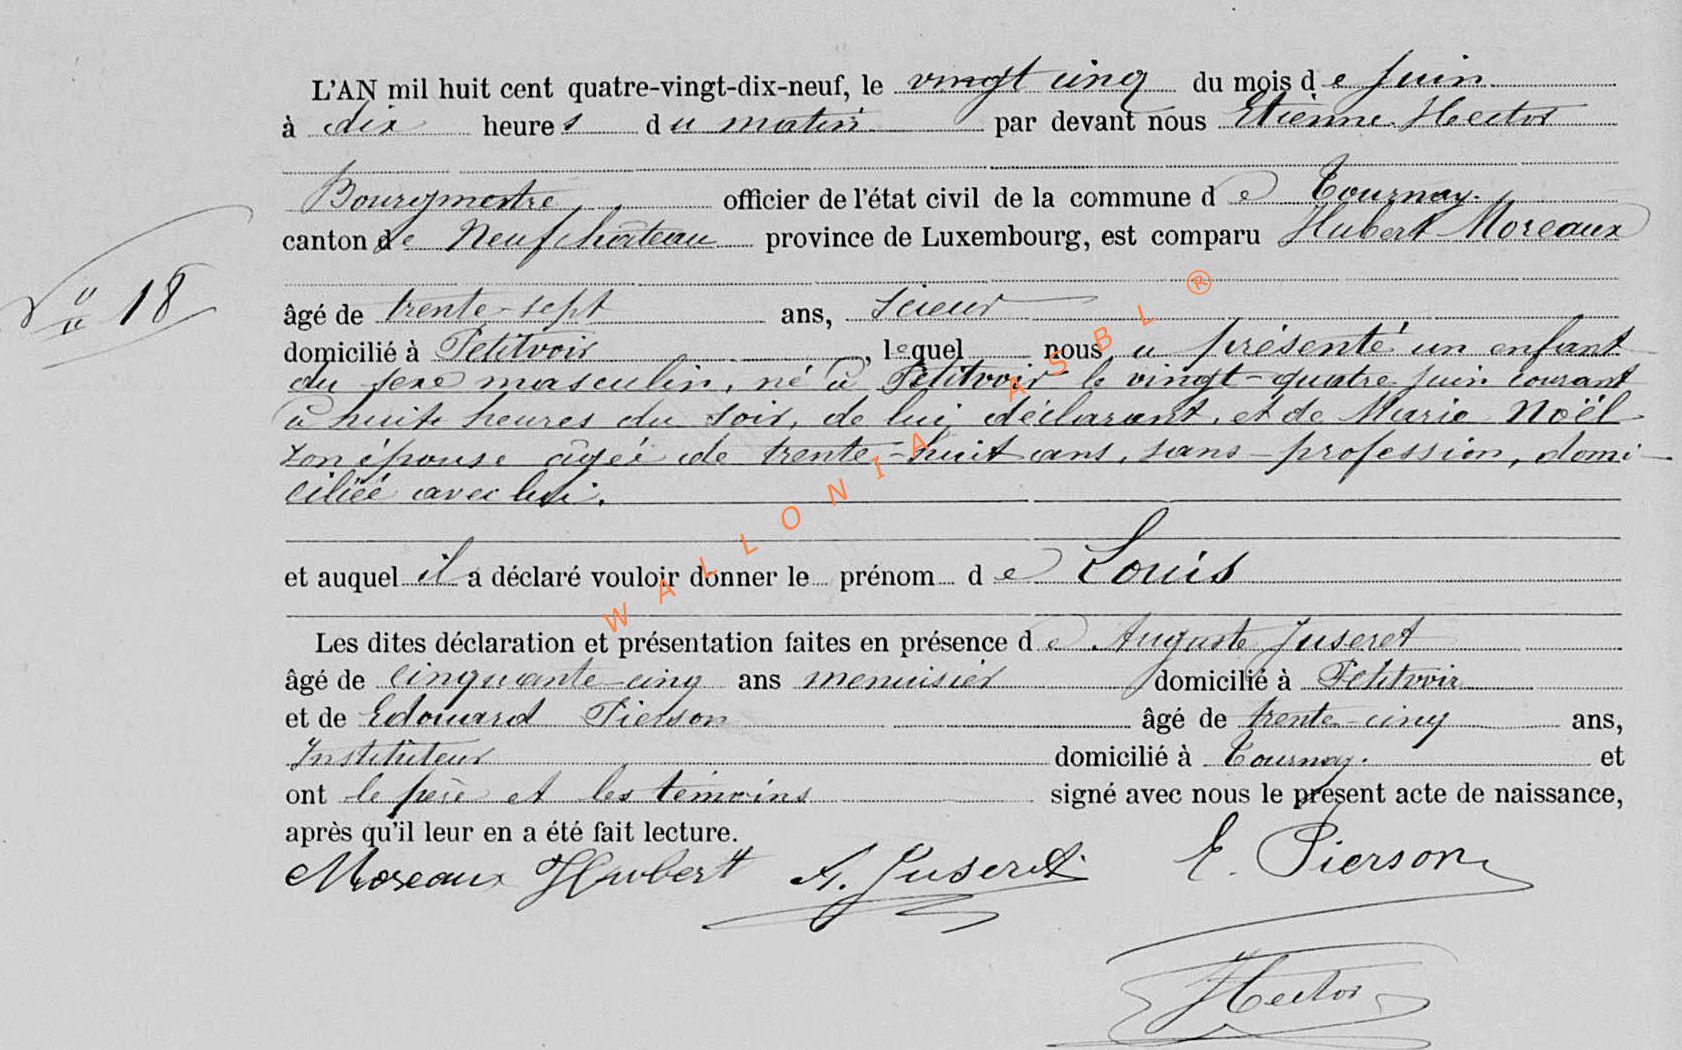 L'AN mil huit cent quatre-vingt-dix-neuf, le vingt cinq du mois de Juin
à dix heures du matin par devant nous Etienne Hector
Bourgmestre officier de l'état civil de la commune de Tournay.
canton de Neufchâteau province de Luxembourg, est comparu Hubert Moreaux
N° 18
âgé de trente-sept ans, scieur
domicilié à Petitvoir, lequel nous a présenté un enfant
du sexe masculin, né à Petitvoir le vingt-quatre juin courant
à huit heures du soir, de lui déclarant, et de Marie Noël
son épouse âgée de trente-huit ans, sans-profession, domi-
ciliée avec lui.
et auquel il a déclaré vouloir donner le prénom de Louis
Les dites déclaration et présentation faites en présence de Auguste Juseret
âgé de cinquante-cinq ans menuisier domicilié à Petitvoir
et de Edouard Pierson âgé de trente-cinq ans,
Instituteur domicilié à Tournay. et
ont le père et les témoins signé avec nous le présent acte de naissance,
après qu'il leur en a été fait lecture.
Moreaux Hubert A. Juseret E. Pierson
Hector
WALLONIA ASBL ®